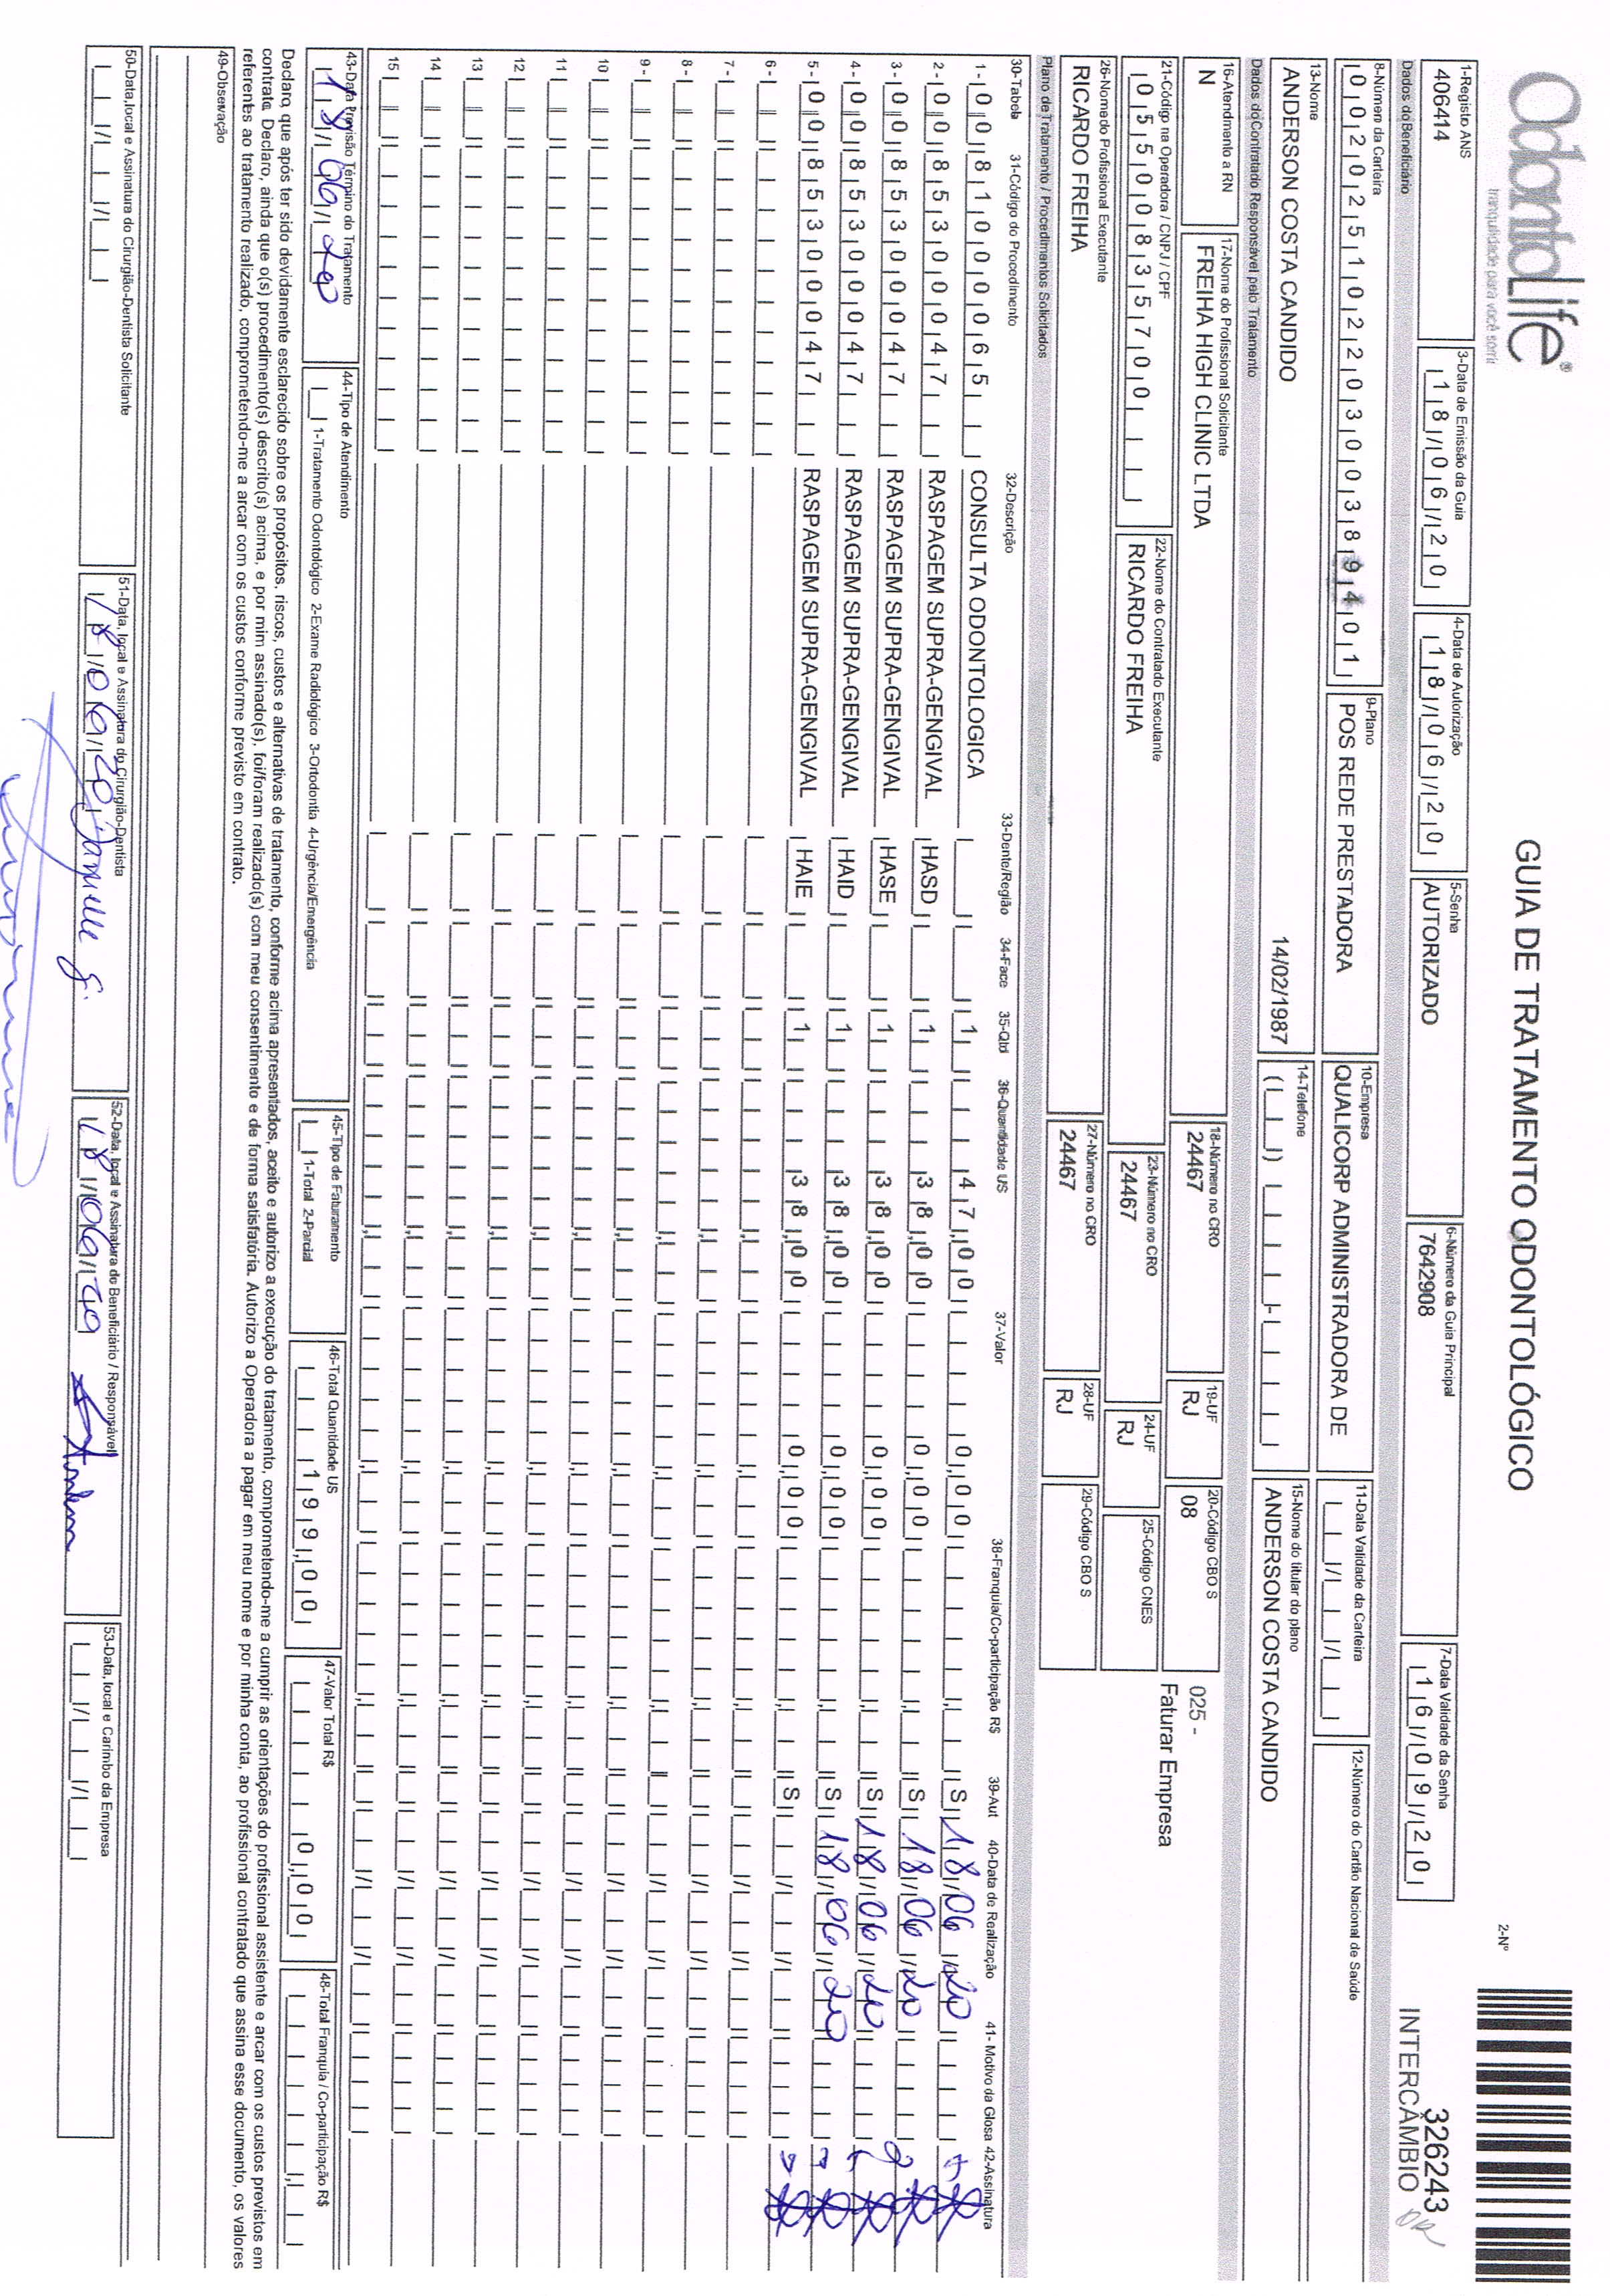 OdontoLife®
tranquilidade para você sorrir
GUIA DE TRATAMENTO ODONTOLÓGICO
2-Nº
326243
INTERCÂMBIO
1-Registo ANS
406414
3-Data de Emissão da Guia
18/06/20
4-Data de Autorização
18/06/20
5-Senha
AUTORIZADO
6-Número da Guia Principal
7642908
7-Data Validade da Senha
16/09/20
Dados do Beneficiário
8-Número da Carteira
00202510220303038940 1
9-Plano
POS REDE PRESTADORA
10-Empresa
QUALICORP ADMINISTRADORA DE
11-Data Validade da Carteira
12-Número do Cartão Nacional de Saúde
13-Nome
ANDERSON COSTA CANDIDO
14/02/1987
14-Telefone
15-Nome do titular do plano
ANDERSON COSTA CANDIDO
Dados do Contratado Responsável pelo Tratamento
16-Atendimento a RN
N
17-Nome do Profissional Solicitante
FREIHA HIGH CLINIC LTDA
18-Número no CRO
24467
19-UF
RJ
20-Código CBO S
08
025 -
Faturar Empresa
21-Código na Operadora / CNPJ / CPF
05500835700
22-Nome do Contratado Executante
RICARDO FREIHA
23-Número no CRO
24467
24-UF
RJ
25-Código CNES
26-Nome do Profissional Executante
RICARDO FREIHA
27-Número no CRO
24467
28-UF
RJ
29-Código CBO S
Plano de Tratamento / Procedimentos Solicitados
30-Tabela 31-Código do Procedimento 32-Descrição 33-Dente/Região 34-Face 35-Qtd 36-Quantidade US 37-Valor 38-Franquia/Co-participação R$ 39-Aut 40-Data de Realização 41- Motivo da Glosa 42-Assinatura
1- 00 81000065 CONSULTA ODONTOLOGICA 1 47,00 0,00 S 18/06/20
2- 00 85300047 RASPAGEM SUPRA-GENGIVAL HASD 1 38,00 0,00 S 18/06/20
3- 00 85300047 RASPAGEM SUPRA-GENGIVAL HASE 1 38,00 0,00 S 18/06/20
4- 00 85300047 RASPAGEM SUPRA-GENGIVAL HAID 1 38,00 0,00 S 18/06/20
5- 00 85300047 RASPAGEM SUPRA-GENGIVAL HAIE 1 38,00 0,00 S
6-
7-
8-
9-
10
11
12
13
14
15
43-Data Previsão Término do Tratamento
18/06/20
44-Tipo de Atendimento
1-Tratamento Odontológico 2-Exame Radiológico 3-Ortodontia 4-Urgência/Emergência
45-Tipo de Faturamento
1-Total 2-Parcial
46-Total Quantidade US
199,00
47-Valor Total R$
0,00
48-Total Franquia / Co-participação R$
Declaro, que após ter sido devidamente esclarecido sobre os propósitos, riscos, custos e alternativas de tratamento, conforme acima apresentados, aceito e autorizo a execução do tratamento, comprometendo-me a cumprir as orientações do profissional assistente e arcar com os custos previstos em
contrato. Declaro, ainda que o(s) procedimento(s) descrito(s) acima, e por mim assinado(s), foi/foram realizado(s) com meu consentimento e de forma satisfatória. Autorizo a Operadora a pagar em meu nome e por minha conta, ao profissional contratado que assina esse documento, os valores
referentes ao tratamento realizado, comprometendo-me a arcar com os custos conforme previsto em contrato.
49-Observação
50-Data,local e Assinatura do Cirurgião-Dentista Solicitante
51-Data, local e Assinatura do Cirurgião-Dentista
18/06/20
52-Data, local e Assinatura do Beneficiário / Responsável
18/06/20
53-Data, local e Carimbo da Empresa